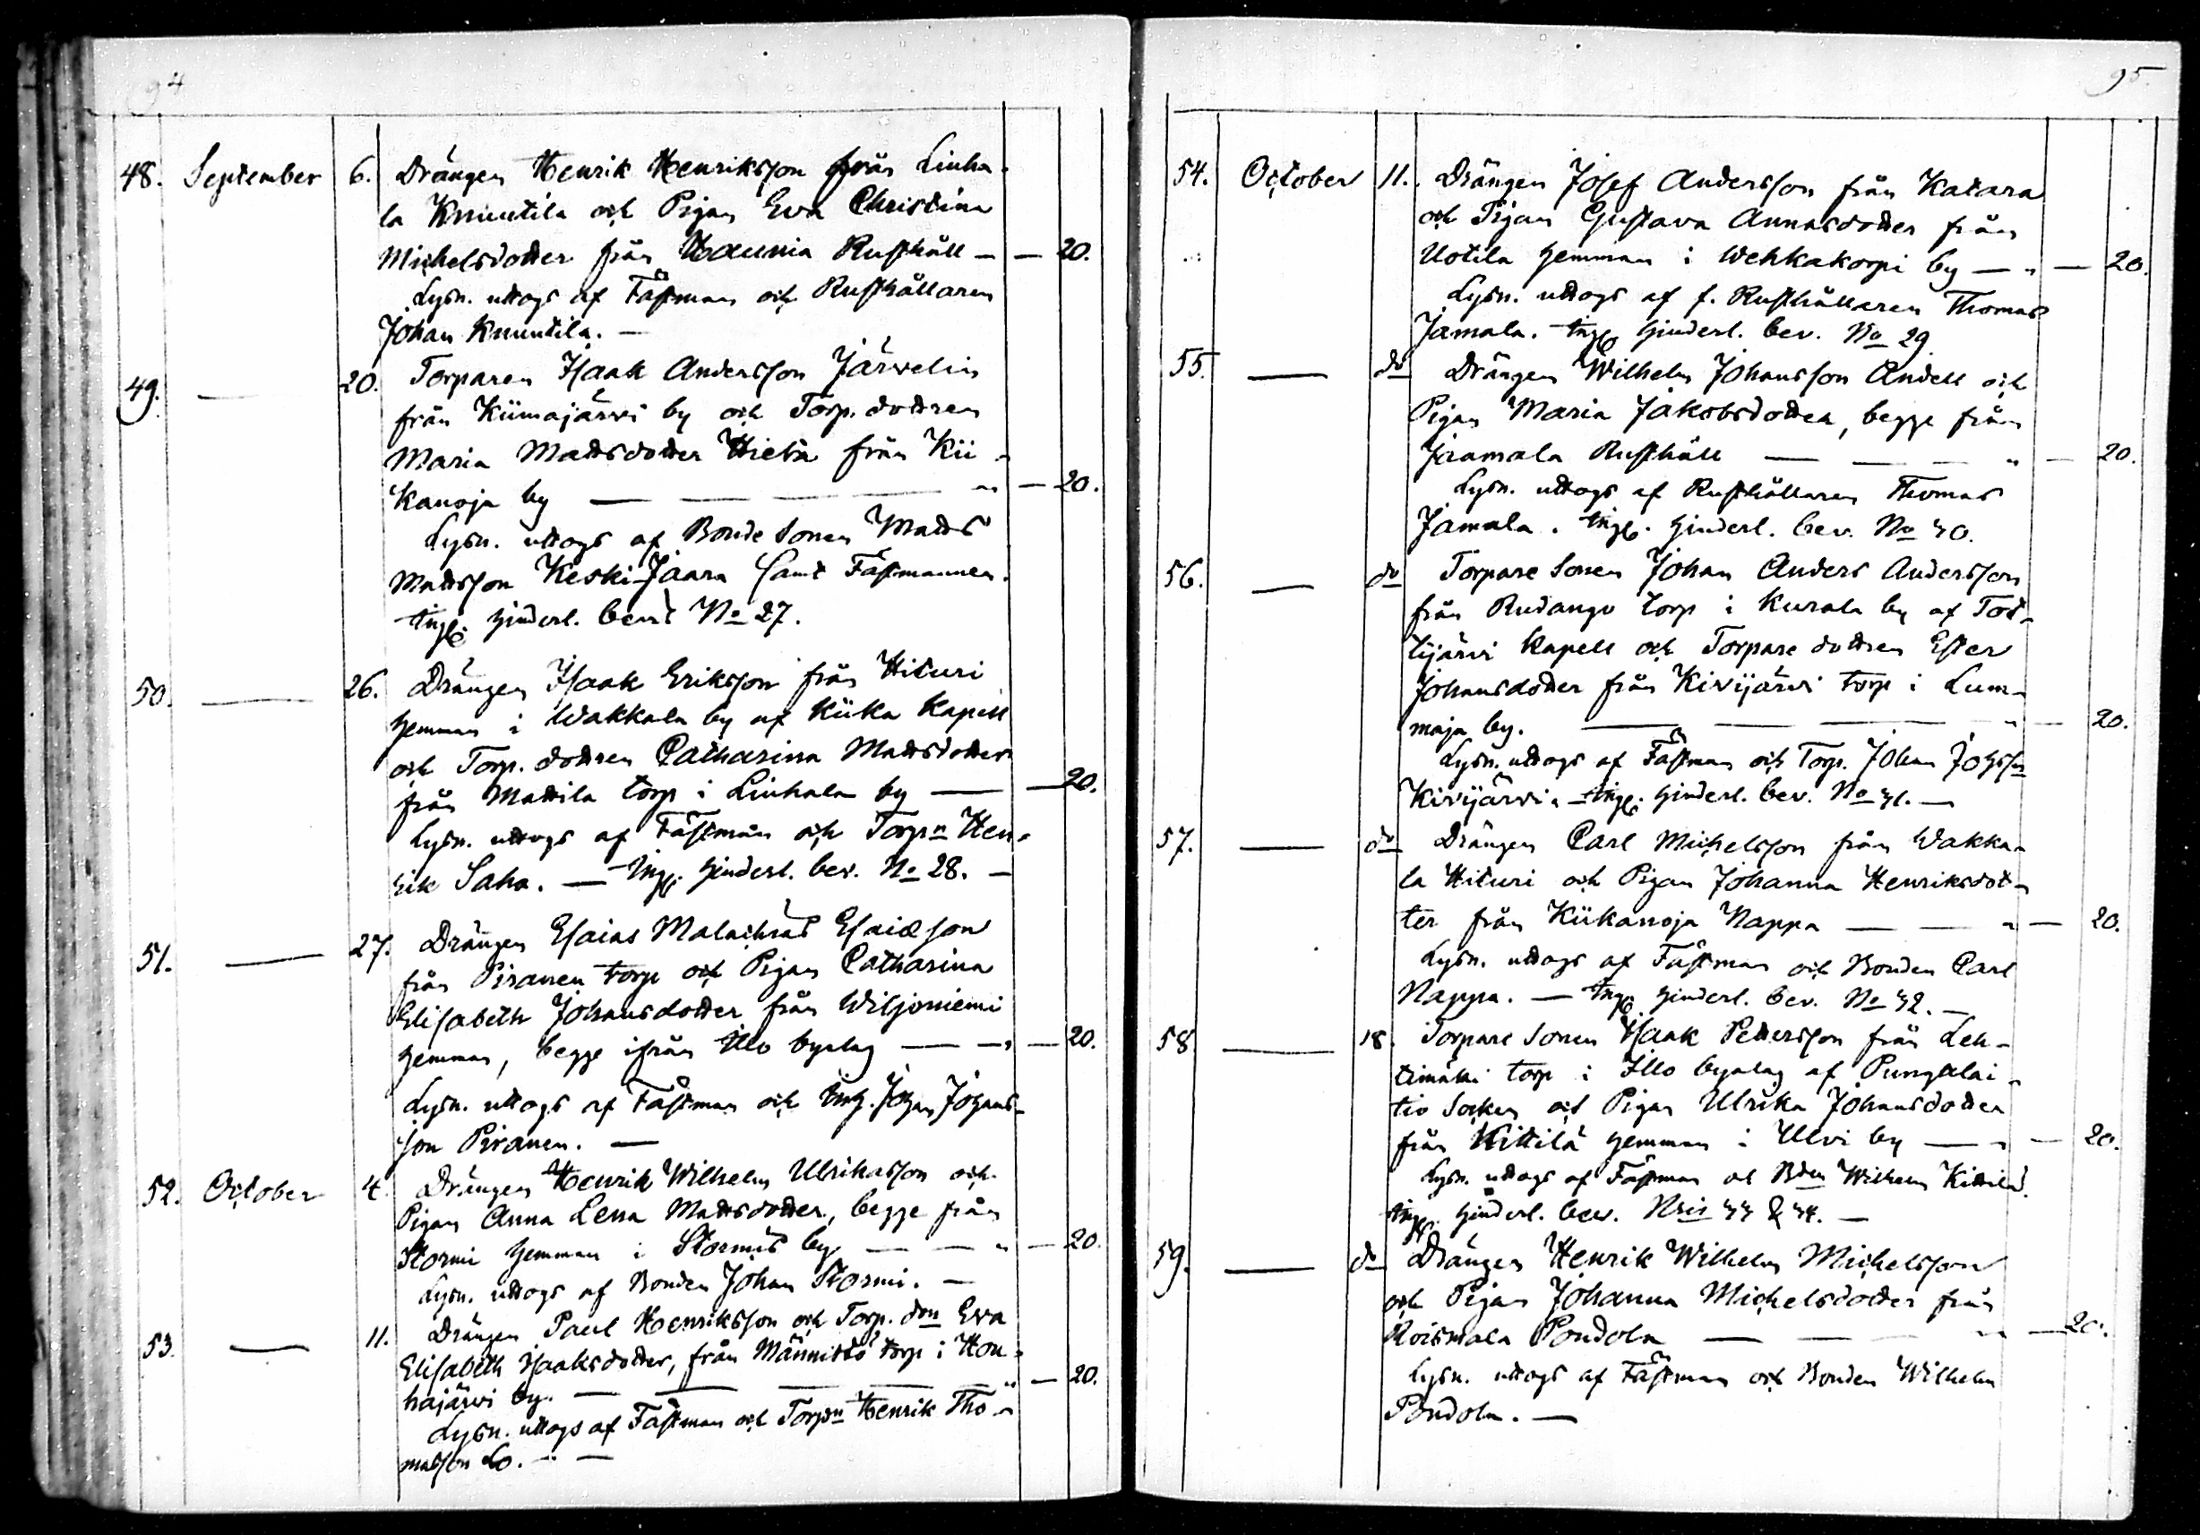 94
48. September 6. Drängen Henrik Henriksson från Liuha-
la Knuutila och Pigan Eva Christina
Michelsdotter från Haunia Rusthåll — — 20.
Lysn. uttogs af Fästman och Rusthållaren
Johan Knuutila. —
49. — 20. Torparen Isaak Andersson Järvelin
från Kiimajärvi by och Torp. dottren
Maria Mattsdotter Hietu från Kii-
kanoja by — — — " — 20.
Lysn. uttogs af Bonde Sonen Matts
Mattsson Keski-Jaara samt Fästmannen.
Ingl. hinderl. bevis No 27.
50. — 26. Drängen Isaak Eriksson från Hituri
hemman i Wakkala by af Kiika Kapell
och Torp. dottren Catharina Mattsdotter
från Mattila torp i Liuhala by — — 20.
Lysn. uttogs af Fästman och Torpn Hen-
rik Saha. — Ingl. hinderl. bev. No 28. —
51. — 27. Drängen Esaias Malachias Esaiæson
från Piranen torp och Pigan Catharina
Elisabeth Johansdotter från Wiljoniemi
hemman, begge ifrån Illo byalag — — " — 20.
Lysn. uttogs af Fästman och Johan Johans-
son Piranen. —
52. October 4. Drängen Henrik Wilhelm Ulrikasson och
Pigan Anna Lena Mattsdotter, begge från
Stormi hemman i Stormis by — — " — 20.
Lysn. uttogs af Bonden Johan Stormi. —
53. — 11. Drängen Paul Henriksson och Torp. don Eva
Elisabeth Isaaksdotter, från Männistö torp i Hou-
hajärvi by. — — — — " — 20.
Lysn. uttogs af Fästman och Torpn Henrik Tho-
masson Lo. — —
95.
54. October 11. Drängen Josef Andersson från Katara
och Pigan Gustava Annasdotter från
Uotila hemman i Wehkakorpi by — " — 20.
Lysn. uttogs af f. Rusthållaren Thomas
Jamala. Ingl. hinderl. bev. No 29
55. — do Drängen Wilhelm Johansson Andell och
Pigan Maria Jakobsdotter, begge från
Jaamala Rusthåll — — — " — 20.
Lysn. uttogs af Rusthållaren Thomas
Jamala. Ingl. hinderl. bev. No 30.
56. — do Torpare Sonen Johan Anders Andersson
från Rudango torp i Kurala by af Tot-
tijärvi Kapell och Torpare dottren Ester
Johansdotter från Kivijärvi torp i Lum-
maja by. — — — " — 20.
Lysn. uttogs af Fästman och Torp. Johan Johsson
Kivijärvi. — Ingl. hinderl. bev. No 31. —
57. — do Drängen Carl Michelsson från Wakka-
la Hituri och Pigan Johanna Henriksdot-
ter från Kiikanoja Nappa — — " — 20.
Lysn. uttogs af Fästman och Bonden Carl
Nappa. — Ingl. hinderl. bev. No 32. —
58 — 18. Torpare Sonen Isaak Pettersson från Leh-
timäki torp i Illo byalag af Pungalai-
tio Socken och Pigan Ulrika Johansdotter
från Kittilä hemman i Ulvi by — " — 20.
Lysn. uttogs af Fästman och Bden Wilhelm Kittilä.
Ingl. hinderl. bev. Nris 33 & 34. —
59. — do Drängen Henrik Wilhelm Michelsson
och Pigan Johanna Michelsdotter från
Roismala Pondola — — " — 20.
Lysn. uttogs af Fästman och Bonden Wilhelm
Pondola. —